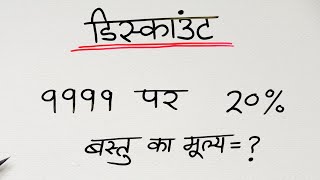 डिस्काउंट
१११९ पर 20%
बस्तु का मूल्य = ?